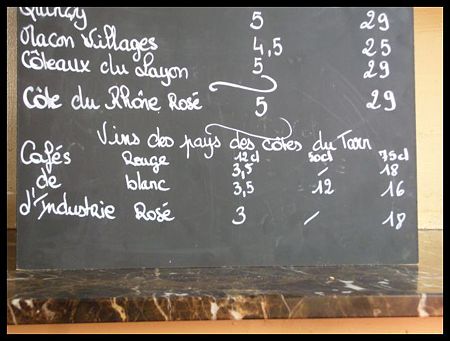 Quincy 5 29
Macon Villages 4,5 25
Côteaux du Layon 5 29
Côte du Rhône Rosé 5 29
Vins des pays des côtes du Tarn
Cafés Rouge 12cl 50cl 75cl
3,5 / 18
de blanc 3,5 12 16
d'Industrie Rosé 3 / 18